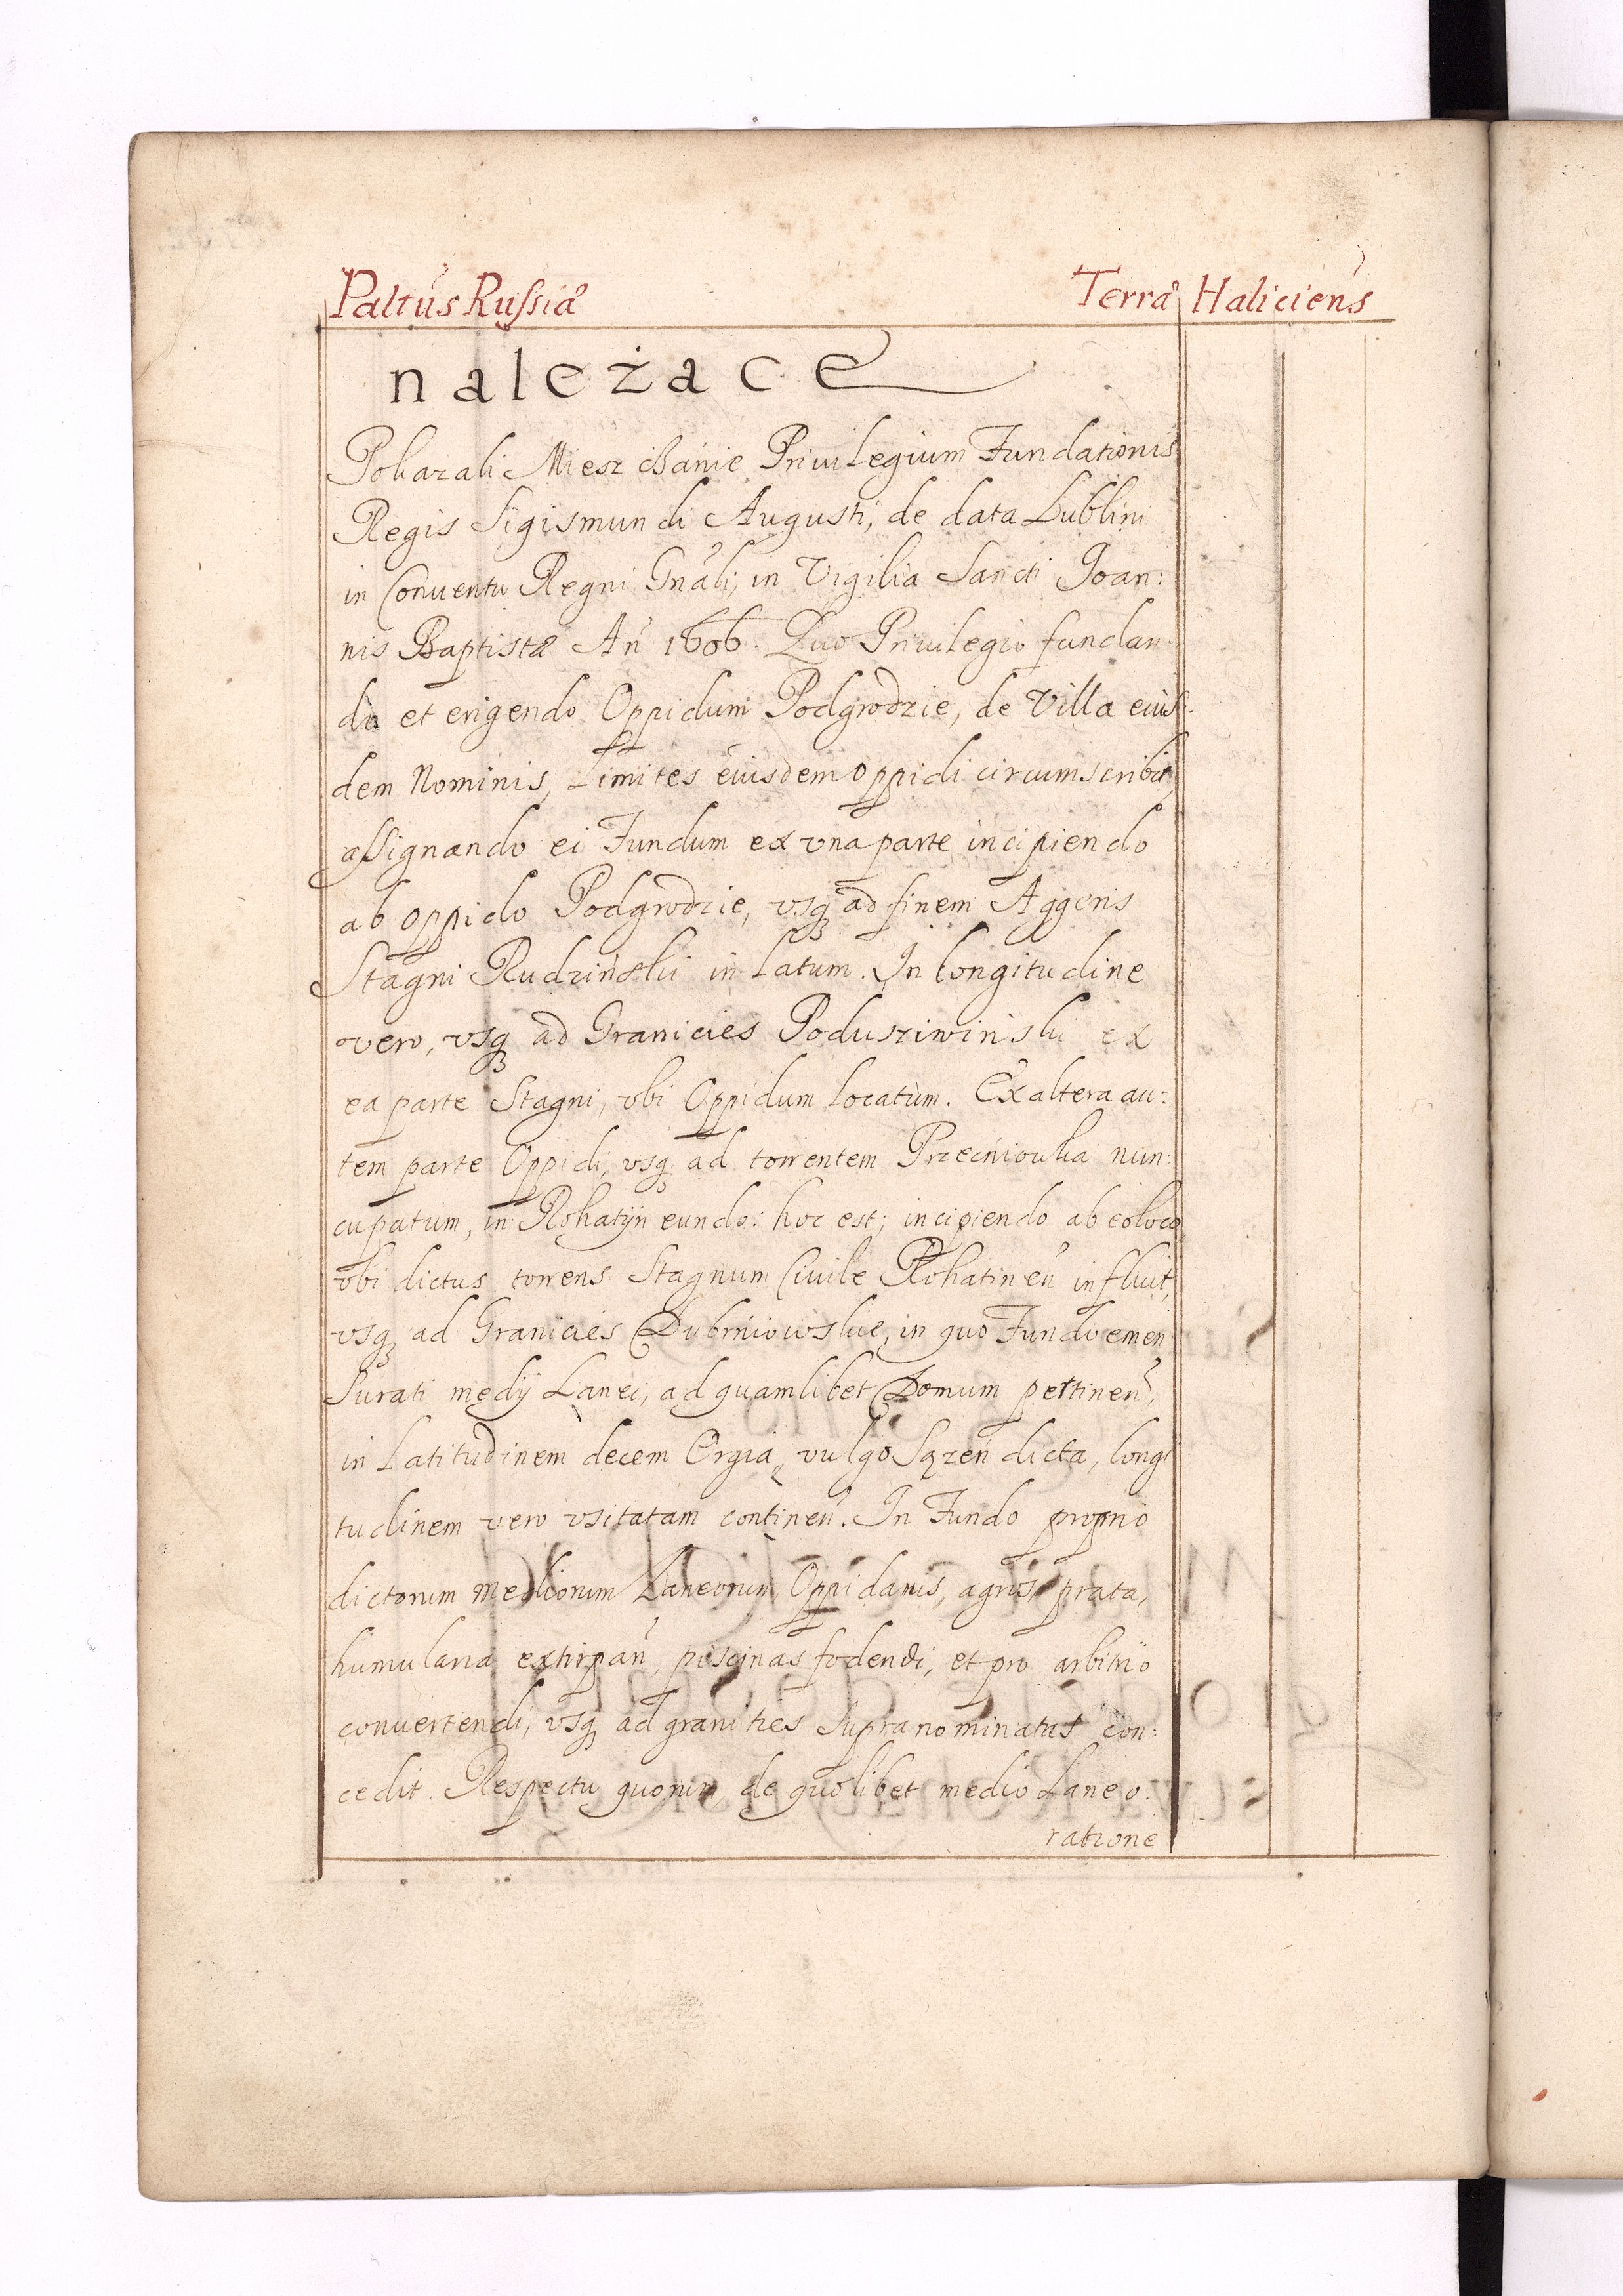 Paltus Russiæ Terræ Haliciens
należące
Pokazali Mieszczanie Priuilegium Fundationis
Regis Sigismundi Augusti, de data Lublini
in Conuentu Regni Gnali, in Vigilia Sancti Joan:
nis Baptistæ An 1606. Quo Priuilegio fundan
do et erigendo Oppidum Podgrodzie, de Villa eius:
dem Nominis, Limites eiusdem oppidi circumscribit,
assignando ei Fundum ex vna parte incipiendo
ab oppido Podgrodzie, vsq ad finem Aggeris
Stagni Rudzinskii in Latum. In longitudine
vero, vsq ad Granicies Poduszriwinski ex
ea parte Stagni, vbi Oppidum Locatum. Ex altera au:
tem parte Oppidi, vsq ad torrentem Przecniouka nun:
cupatum, in Rohatijn eundo: hoc est; incipiendo ab eo loco
vbi dictus torrens Stagnum Ciuile Rohatinen influit,
vsq ad Granicies Dubrniowskie, in quo Fundo emen
surati medij Lanei, ad quamlibet Domum pertinen,
in Latitudinem decem Orgia, vulgo Sązen dicta, longi
tudinem vero vsitatam continen. In Fundo proprio
dictorum mediorum Laneorum, Oppidanis, agros, prata,
humularia extirpan, piscinas fodendi, et pro arbitrio
conuertendi, vsq ad granities supra nominatas con:
cedit. Respectu quorum de quolibet medio Laneo
ratione